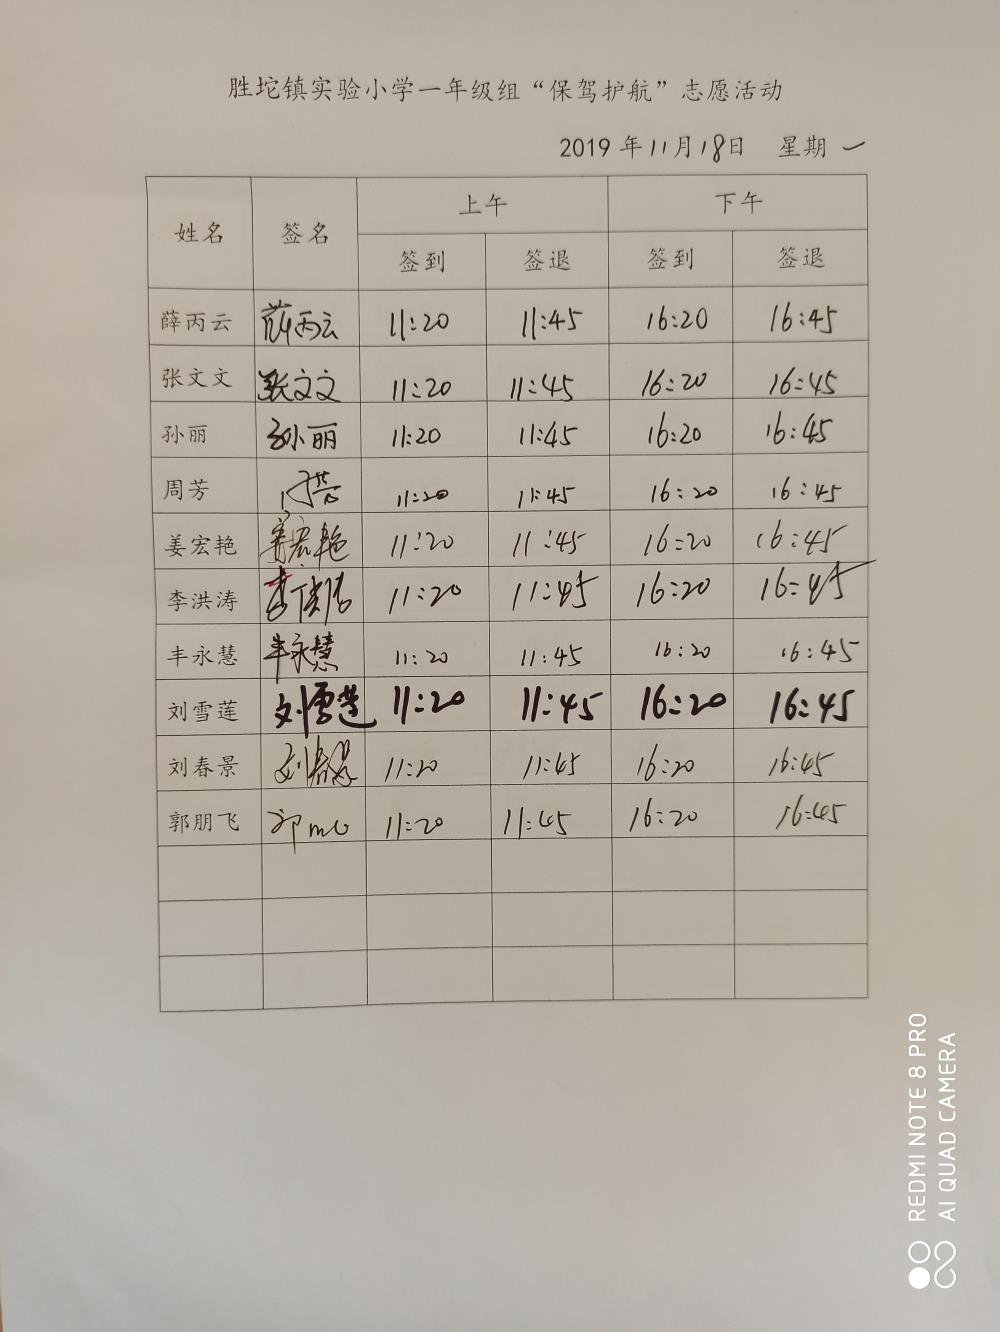 胜坨镇实验小学一年级组“保驾护航”志愿活动
2019 年 11 月 18 日 星期 一
姓名 签名 上午 下午
签到 签退 签到 签退
薛丙云 薛丙云 11:20 11:45 16:20 16:45
张文文 张文文 11:20 11:45 16:20 16:45
孙丽 孙丽 11:20 11:45 16:20 16:45
周芳 周芳 11:20 11:45 16:20 16:45
姜宏艳 姜宏艳 11:20 11:45 16:20 16:45
李洪涛 李洪涛 11:20 11:45 16:20 16:45
丰永慧 丰永慧 11:20 11:45 16:20 16:45
刘雪莲 刘雪莲 11:20 11:45 16:20 16:45
刘春景 刘春景 11:20 11:45 16:20 16:45
郭朋飞 11:20 11:45 16:20 16:45
REDMI NOTE 8 PRO
AI QUAD CAMERA